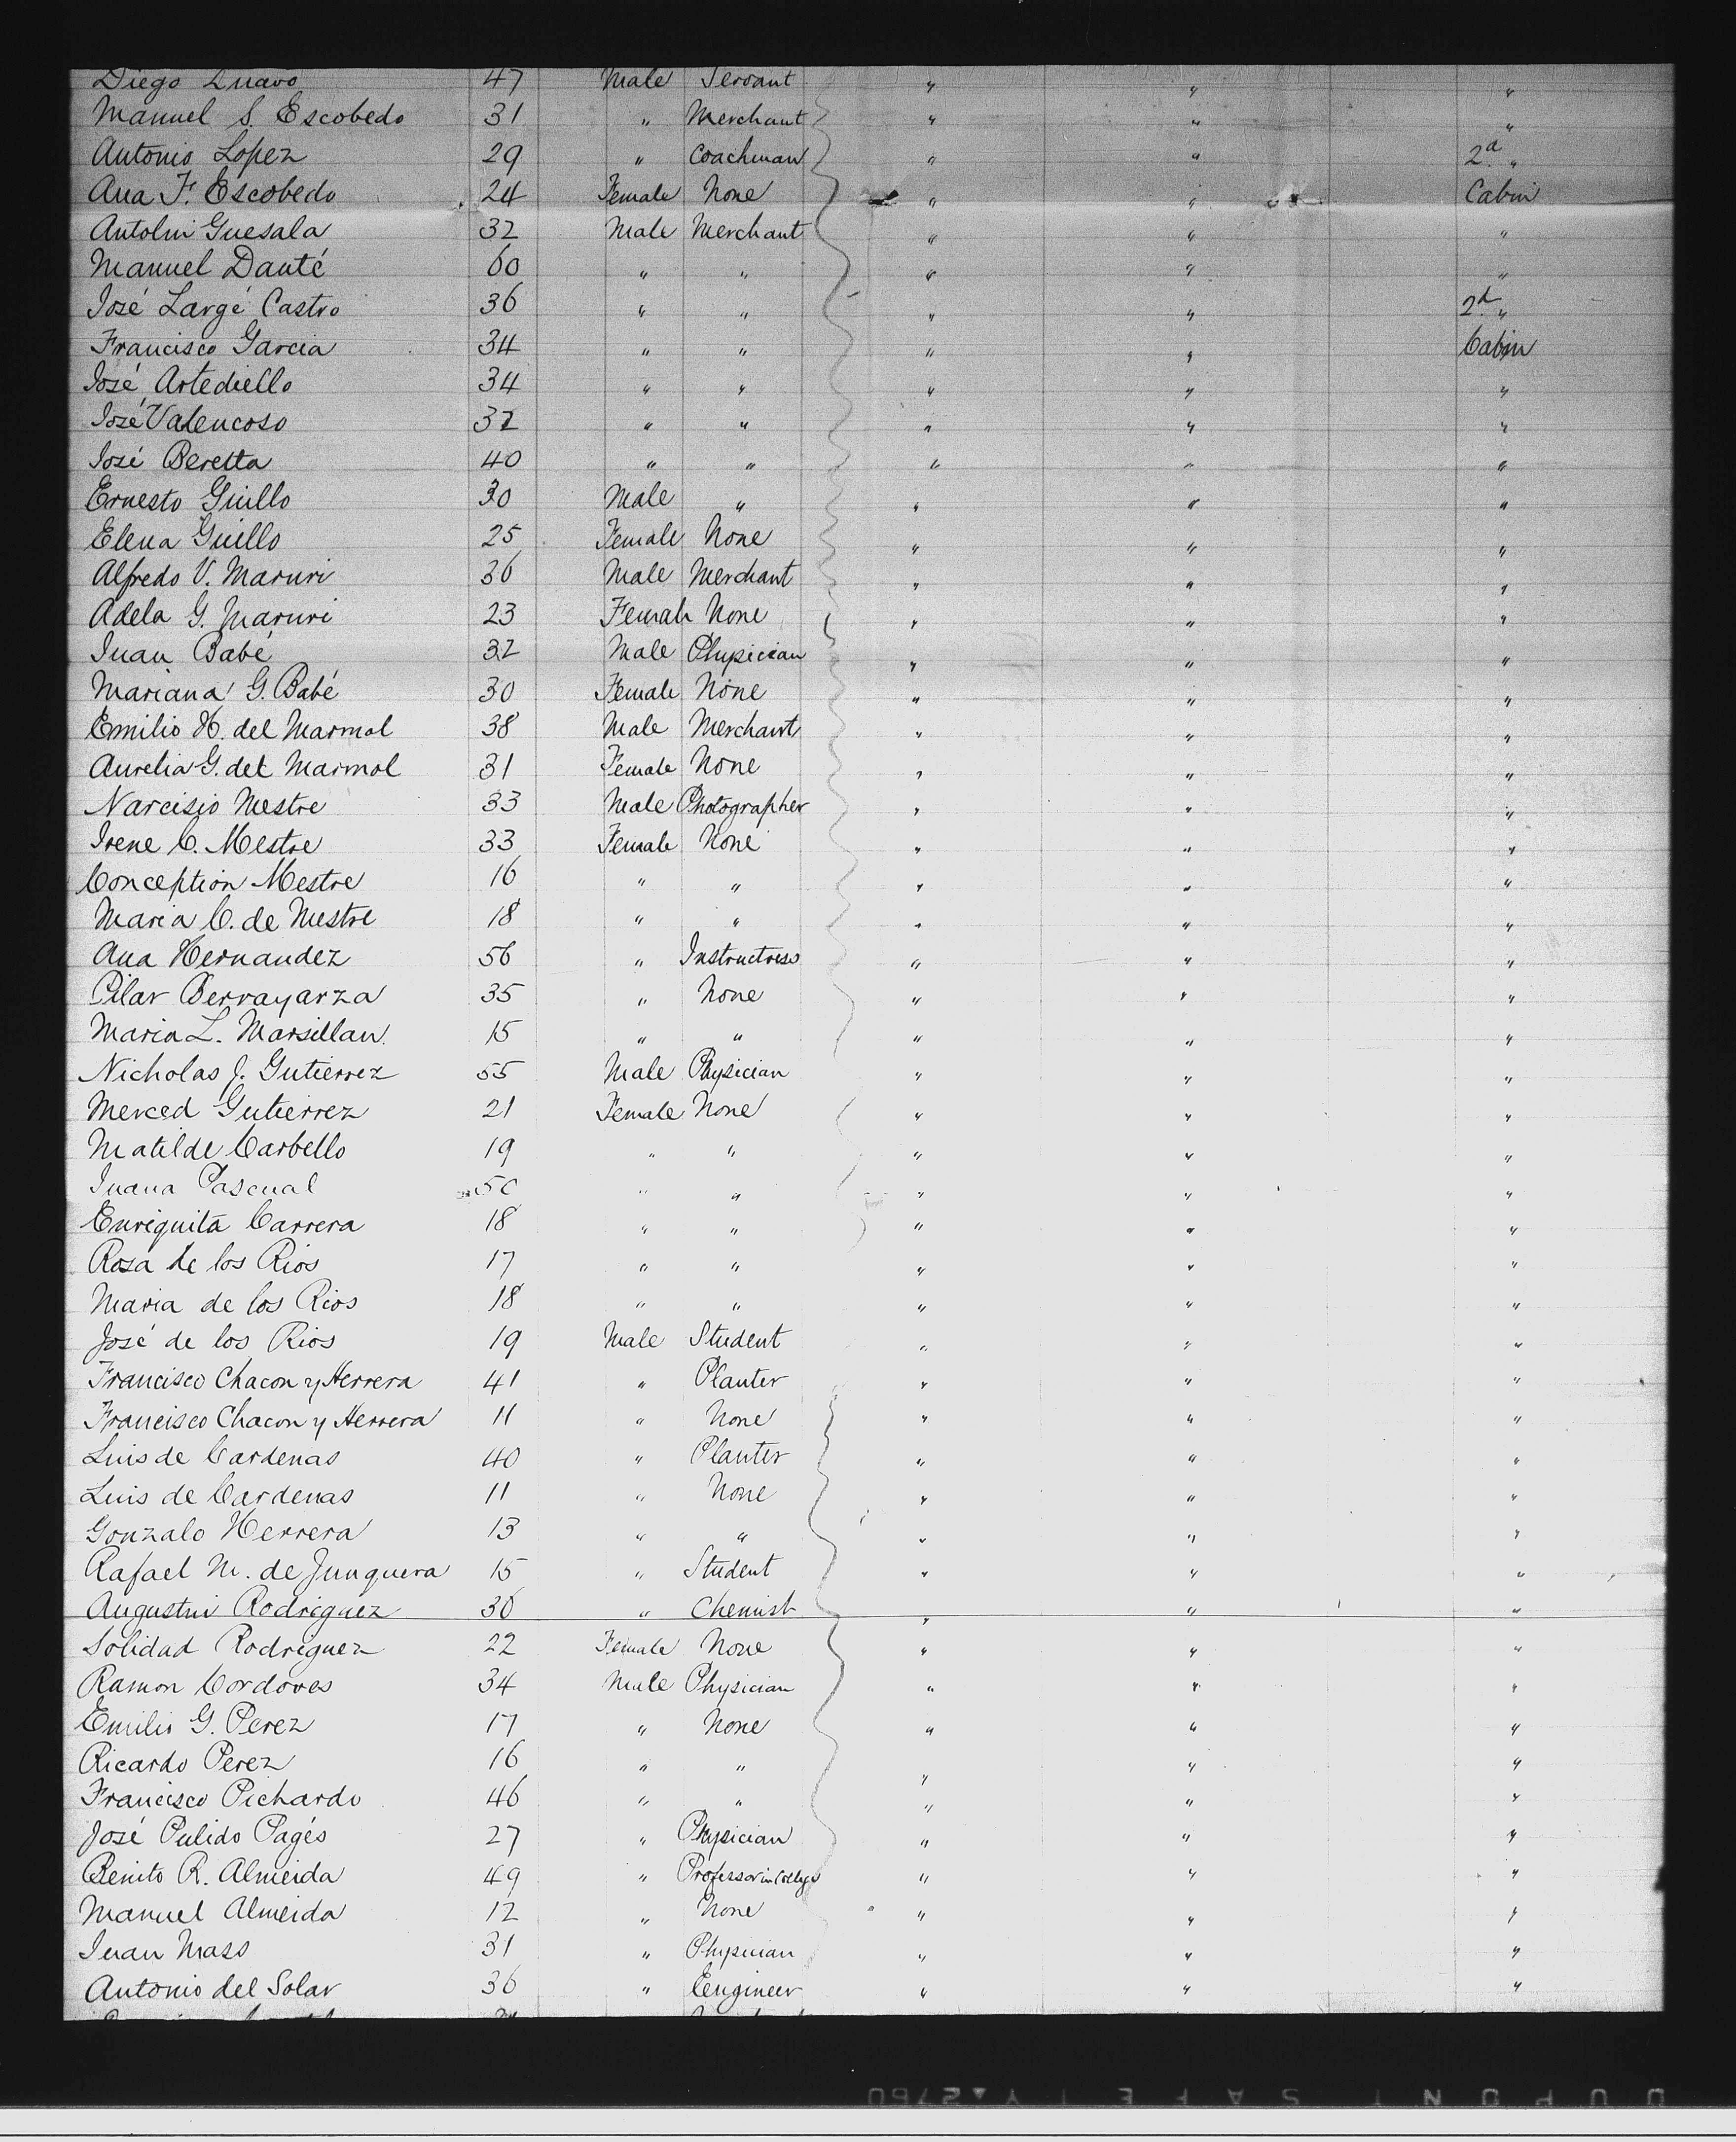 Diego 47 Male Servant " " "
Manuel S. Escobedo 31 " Merchant " " "
Antonio Lopez 29 " Coachman " " 2d "
Ana F. Escobedo 24 Female None " " Cabin
Antolin Guesala 32 Male Merchant " " "
Manuel Danté 60 " " " " "
José Largé Castro 36 " " " " 2d "
Francisco Garcia 34 " " " " Cabin
José Artediello 34 " " " " "
José Valencoso 32 " " " " "
José Beretta 40 " " " " "
Ernesto Guillo 30 Male " " " "
Elena Guillo 25 Female None " " "
Alfredo V. Maruri 36 Male Merchant " " "
Adela G. Maruri 23 Female None " " "
Juan Babé 32 Male Physician " " "
Mariana G. Babé 30 Female None " " "
Emilio H. del Marmol 38 Male Merchant " " "
Aurelia G. del Marmol 31 Female None " " "
Narcisio Mestre 33 Male Photographer " " "
Irene C. Mestre 33 Female None " " "
Conception Mestre 16 " " " " "
Maria C. de Mestre 18 " " " " "
Ana Hernandez 56 " Instructress " " "
Pilar Berrayarza 35 " None " " "
Maria L. Marsillan 15 " " " " "
Nicholas J. Gutierrez 55 Male Physician " " "
Merced Gutierrez 21 Female None " " "
Matilde Carbello 19 " " " " "
Juana Pascual 50 " " " " "
Enriquita Carrera 18 " " " " "
Rosa de los Rios 17 " " " " "
Maria de los Rios 18 " " " " "
José de los Rios 19 Male Student " " "
Francisco Chacon y Herrera 41 " Planter " " "
Francisco Chacon y Herrera 11 " None " " "
Luis de Cardenas 40 " Planter " " "
Luis de Cardenas 11 " None " " "
Gonzalo Herrera 13 " " " " "
Rafael M. de Junquera 15 " Student " " "
Augustin Rodriguez 30 " Chemist " " "
Solidad Rodriguez 22 Female None " " "
Ramon Cordoves 34 Male Physician " " "
Emilio G. Perez 17 " None " " "
Ricardo Perez 16 " " " " "
Francisco Pichardo 46 " " " " "
José Pulido Pagés 27 " Physician " " "
Benito R. Almeida 49 " Professor in College " " "
Manuel Almeida 12 " None " " "
Juan Mass 31 " Physician " " "
Antonio del Solar 36 " Eengineer " " "
DUPONT SAFETY▲2760